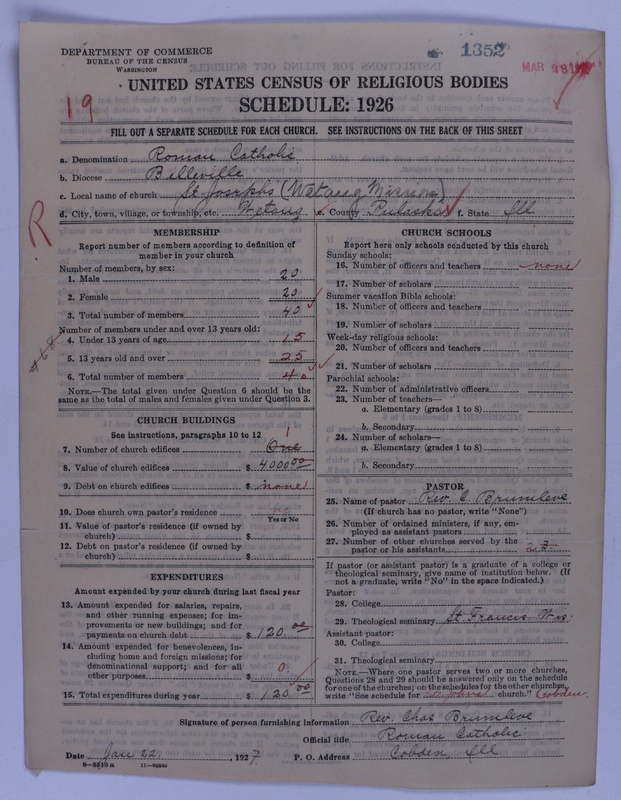 DEPARTMENT OF COMMERCE
BUREAU OF THE CENSUS
WASHINGTON
1352
MAR
19
UNITED STATES CENSUS OF RELIGIOUS BODIES
SCHEDULE: 1926
FILL OUT A SEPARATE SCHEDULE FOR EACH CHURCH. SEE INSTRUCTIONS ON THE BACK OF THIS SHEET
a. Denomination Roman Catholic
b. Diocese Belleville
c. Local name of church St. Josephs (Wetaug Mission)
d. City, town, village, or township, etc. Wetaug e. County Pulaski f. State Ill
R
MEMBERSHIP
Report number of members according to definition of
member in your church
Number of members, by sex:
1. Male 20
2. Female 20
3. Total number of members 40
Number of members under and over 13 years old:
4. Under 13 years of age 15
5. 13 years old and over 25
6. Total number of members 40
NOTE.—The total given under Question 6 should be the
same as the total of males and females given under Question 3.
CHURCH BUILDINGS
See instructions, paragraphs 10 to 12
1
7. Number of church edifices One
8. Value of church edifices $ 4000 00
9. Debt on church edifices $ none
10. Does church own pastor's residence no
Yes or No
11. Value of pastor's residence (if owned by
church) $
12. Debt on pastor's residence (if owned by
church) $
EXPENDITURES
Amount expended by your church during last fiscal year
13. Amount expended for salaries, repairs,
and other running expenses; for im-
provements or new buildings; and for
payments on church debt $ 120. 00
14. Amount expended for benevolences, in-
cluding home and foreign missions; for
denominational support; and for all
other purposes $ 0.
15. Total expenditures during year $ 120. 00
CHURCH SCHOOLS
Report here only schools conducted by this church
Sunday schools:
16. Number of officers and teachers none
17. Number of scholars
Summer vacation Bible schools:
18. Number of officers and teachers
19. Number of scholars
Week-day religious schools:
20. Number of officers and teachers
21. Number of scholars
Parochial schools:
22. Number of administrative officers
23. Number of teachers—
a. Elementary (grades 1 to 8)
b. Secondary
24. Number of scholars—
a. Elementary (grades 1 to 8)
b. Secondary
PASTOR
25. Name of pastor Rev. C. Brumleve
(If church has no pastor, write "None")
26. Number of ordained ministers, if any, em-
ployed as assistant pastors
27. Number of other churches served by the
pastor or his assistants 2
If pastor (or assistant pastor) is a graduate of a college or
theological seminary, give name of institution below. (If
not a graduate, write "No" in the space indicated.)
Pastor:
28. College
29. Theological seminary St Francis Wis.
Assistant pastor:
30. College
31. Theological seminary
NOTE.—Where one pastor serves two or more churches,
Questions 28 and 29 should be answered only on the schedule
for one of the churches; on the schedules for the other churches,
write "See schedule for church." Cobden.
Signature of person furnishing information Rev. Chas Brumleve
Official title Roman Catholic
Date Jan 22, 1927 P. O. Address Cobden, Ill